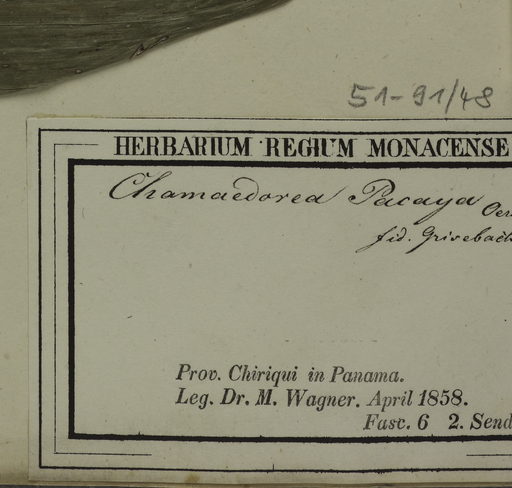 51-91/48
HERBARIUM REGIUM MONACENSE
Chamaedorea Pacaya Oer
fid. Grisebach
Prov. Chiriqui in Panama.
Leg. Dr. M. Wagner. April 1858.
Fasc. 6 2. Send